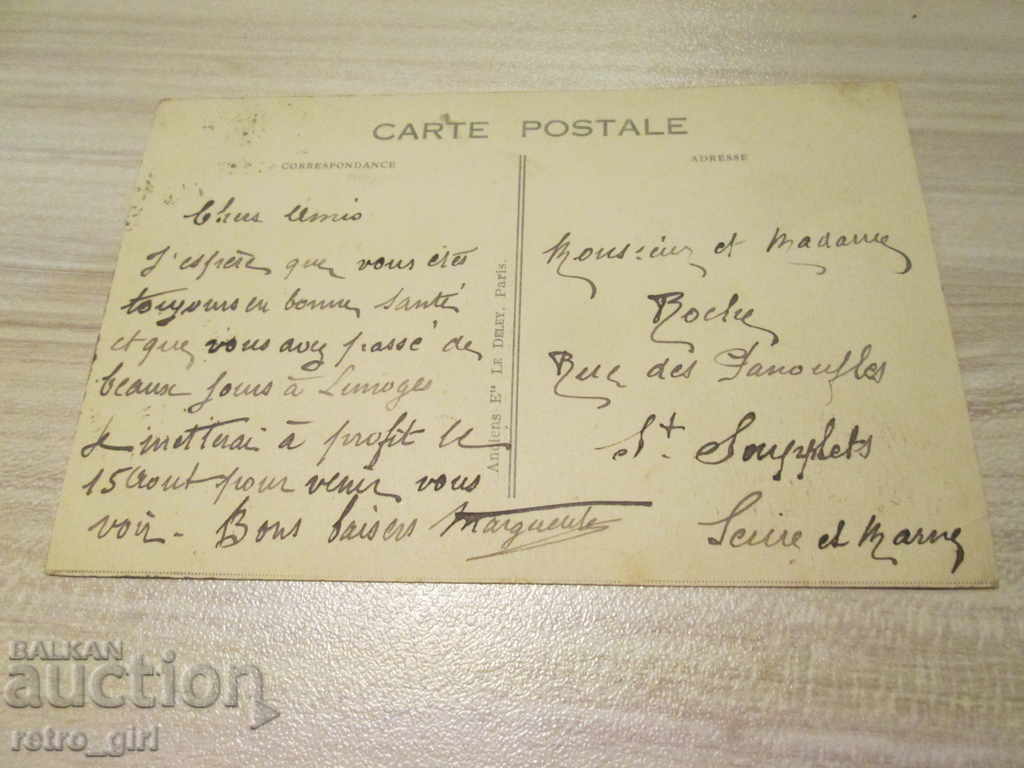 CARTE POSTALE
CORRESPONDANCE
Chers Amis
J'espère que vous êtes
toujours en bonne santé
et que vous avez passé de
beaux jours à Limoges
Je mettrai à profit le
15 Aout pour venir vous
voir - Bons baisers Marguerite
Anciens Etts LE DELEY, Paris.
ADRESSE
Monsieur et Madame
Roche
Rue des Panoufles
St Soupplets
Seine et Marne
BALKAN
auction
retro_girl